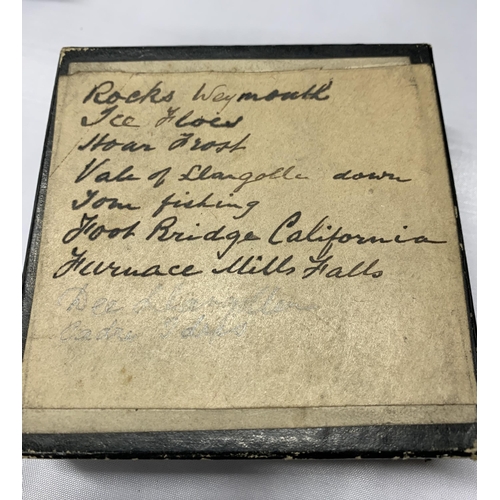 Rocks Weymouth
Ice Floes
Hoar Frost
Vale of Llangolle down
Tom fishing
Foot Bridge California
Furnace Mills Falls
Dee